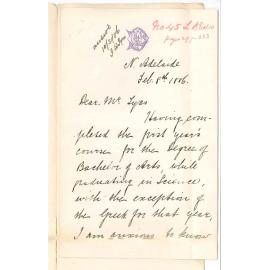 N. Adelaide
Feb. 8th 1886.
Dear Mr Tyas
Having com-
pleted the first year's
course for the Degree of
Bachelor of Arts, while
graduating in Science,
with the exception of
the Greek for that year,
I am anxious to know